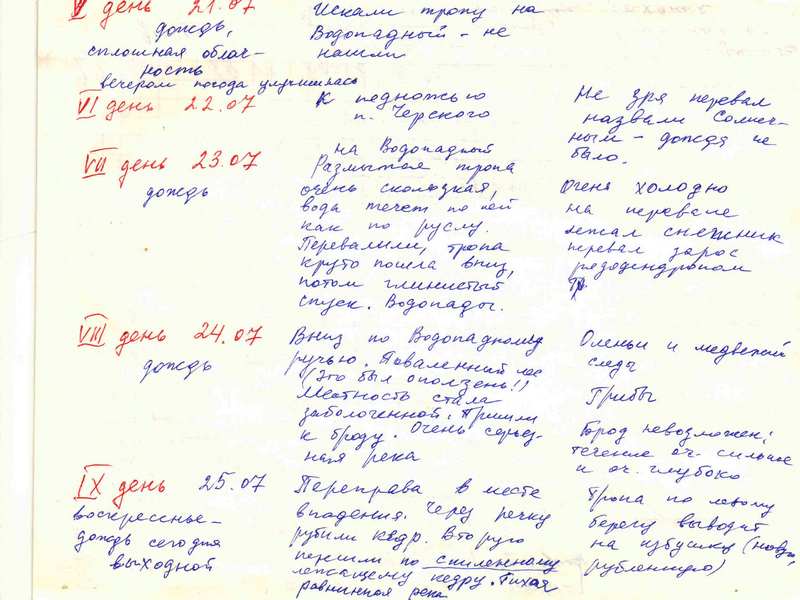 V день 21.07
дождь,
сплошная облач-
ность
вечером погода улучшилась
Искали тропу на
Водопадный - не
нашли
VI день 22.07
К подножью
п. Черского
Не зря перевал
назвали Солнеч-
ным - дождя не
было.
VII день 23.07
дождь
на Водопадный
Размытая тропа
очень скользкая,
вода течет по ней
как по руслу.
Перевалили, тропа
круто пошла вниз,
потом глинистый
спуск. Водопады.
Очень холодно
на перевале
лежал снежник
перевал зарос
рододендроном
VIII день 24.07
дождь
Вниз по Водопадному
ручью. Поваленный лес
(Это был оползень!!)
Местность стала
заболоченной. Пришли
к броду. Очень серьез-
ная река
Оленьи и медвежий
следы
Грибы
Брод невозможен;
течение оч. сильное
и оч. глубоко
IX день 25.07
воскресенье -
дождь сегодня
выходной
Переправа в месте
впадения. Через речку
рубили кедр. Вторую
перешли по спиленному
лежащему кедру. Тихая
равнинная река
Тропа по левому
берегу выводит
на избушку (новую,
рубленную)